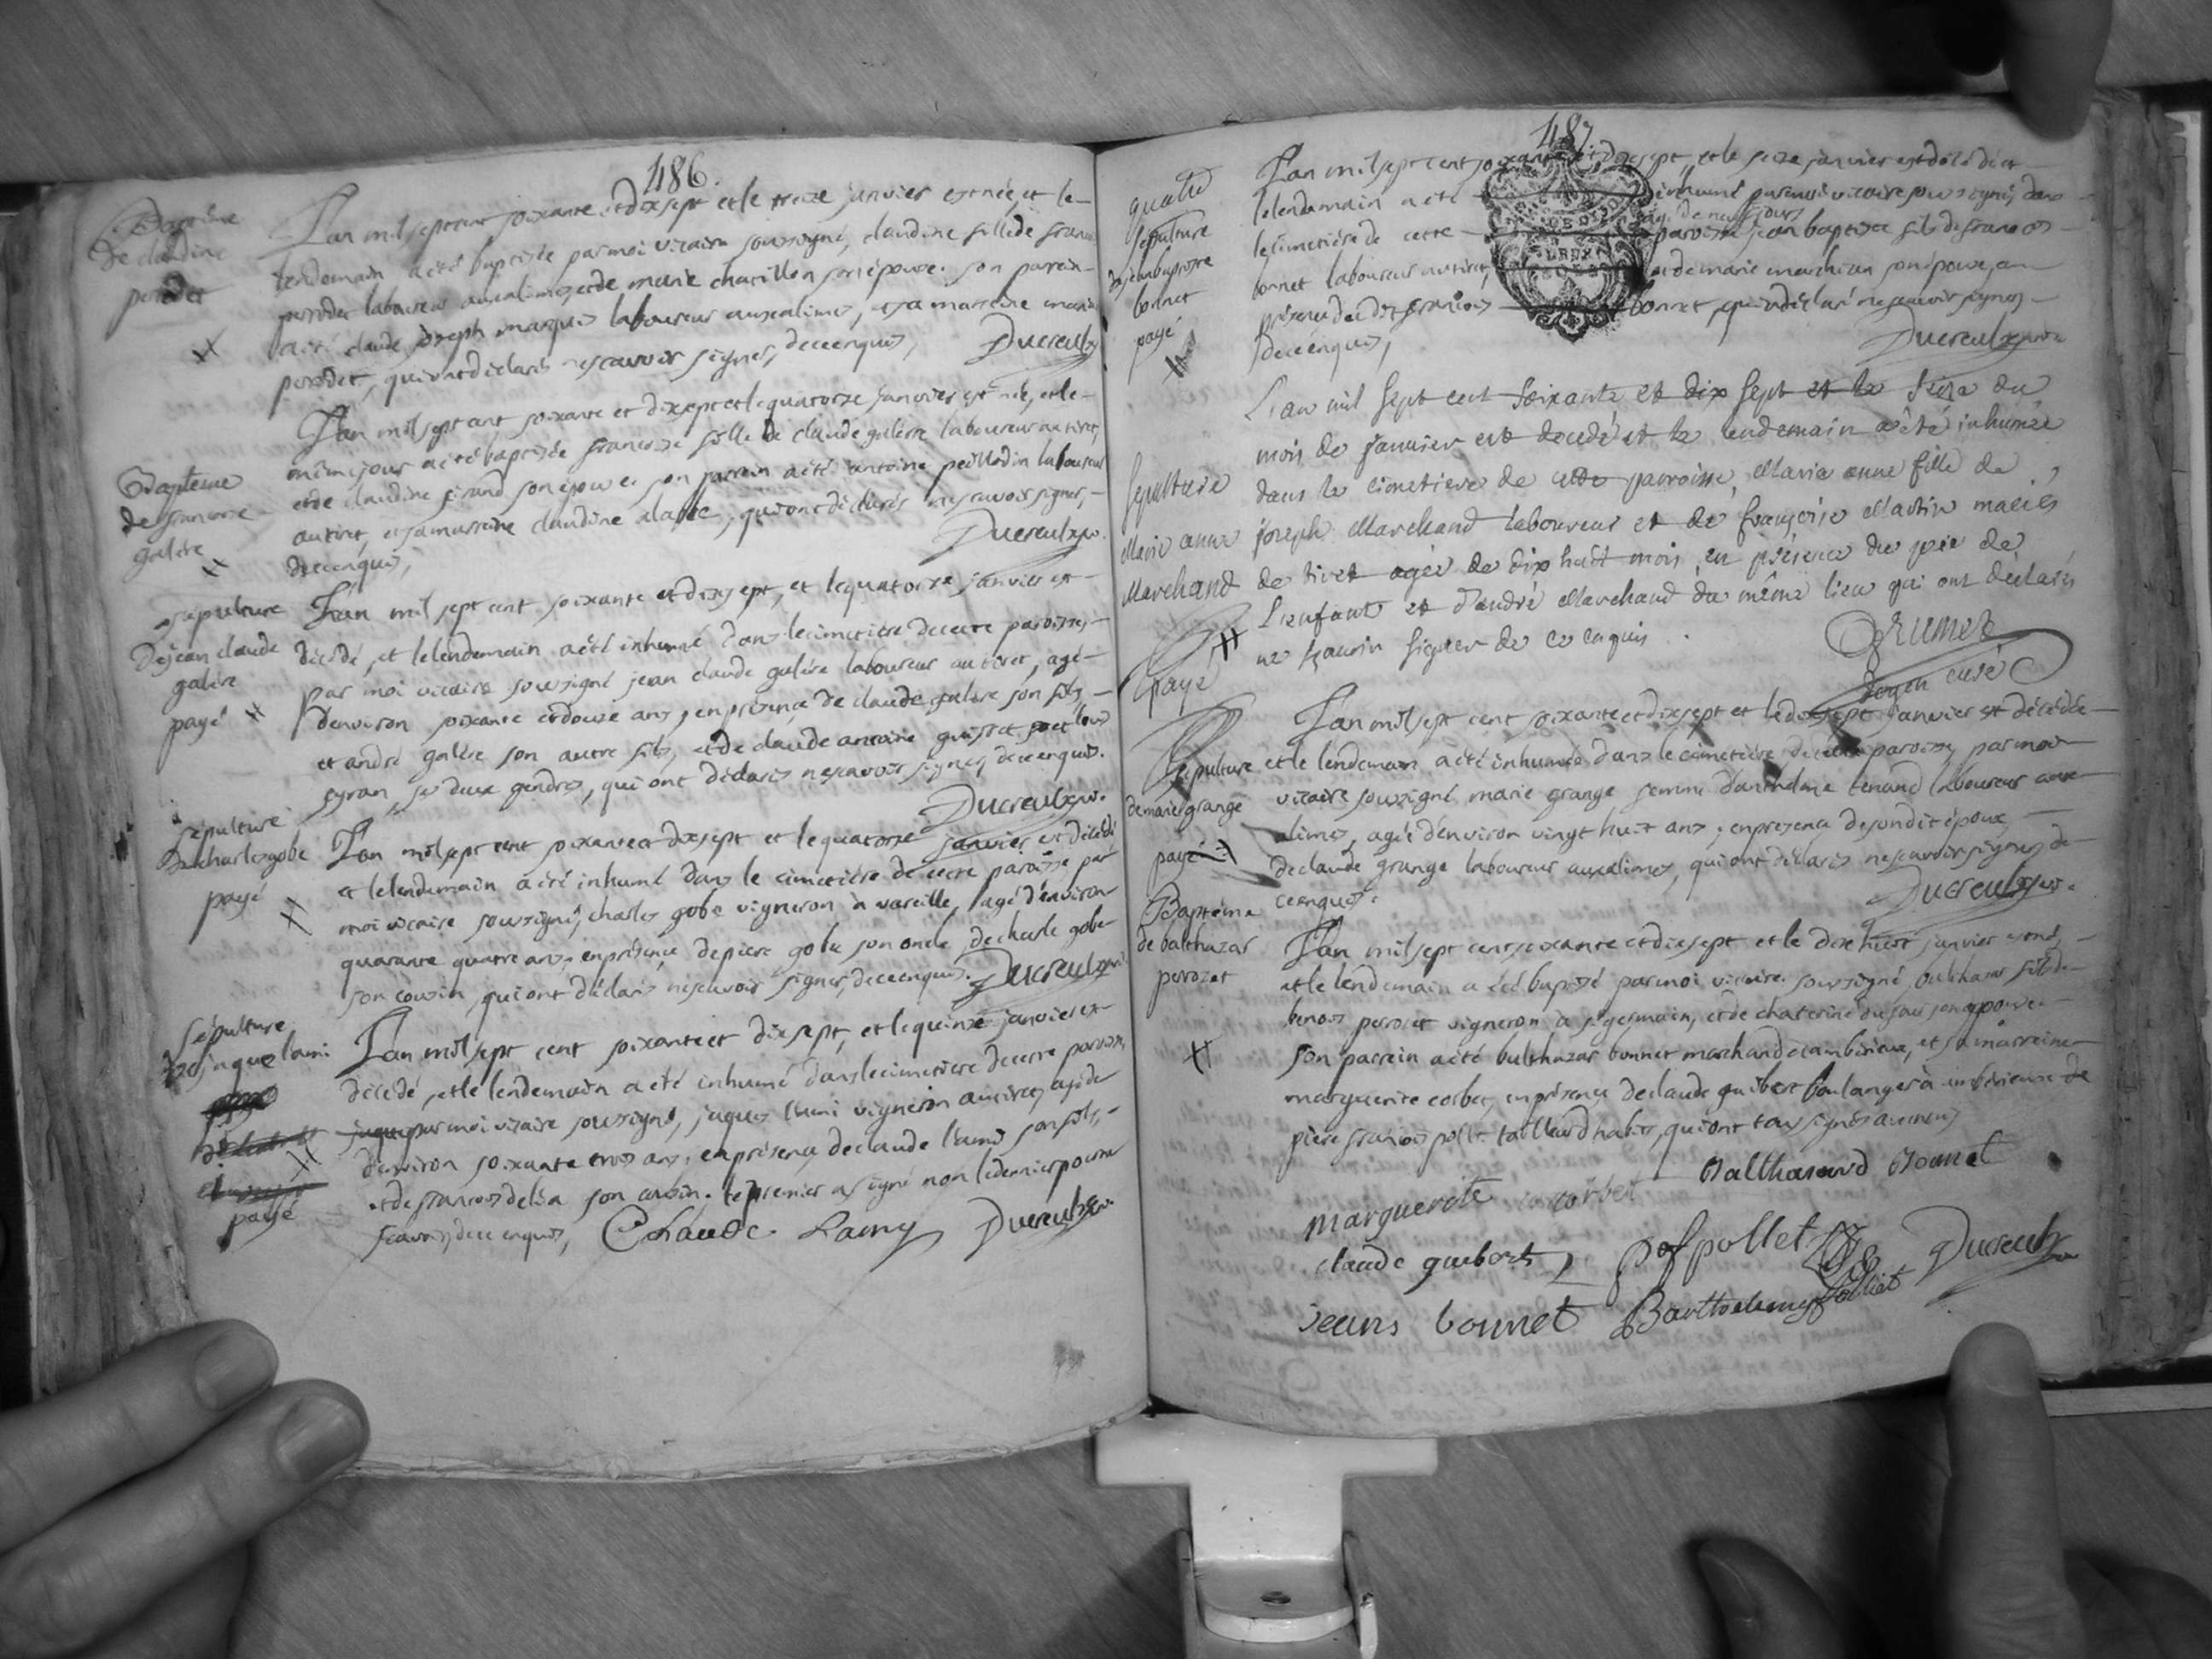 486.
Baptême
de claudine
perodet
L'an mil sept cent soixante et dix sept et le treize janvier est née, et le
lendemain a été baptisée par moi vicaire soussigné, claudine fille de
perrodet laboureur aux alimes, et de marie chatillon son épouse. son parrein
a été claude joseph marques laboureur aux alimes, et sa marreine marie
perodet, qui ont déclarés ne scavoir signer, de ce enquis, Ducreulx
Baptême
de francoise
galere
L'an mil sept cent soixante et dix sept et le quatorze janvier est née, et le
même jour a été baptisée francoise fille de claude galere laboureur au tiret,
et de claudine girand son épouse son parrein a été antoine peillodin laboureur
au tiret, et sa marreine claudine alabe, qui ont déclarés ne scavoir signer,
de ce enquis, Ducreulx
sépulture
de jean claude
galere
payé
L'an mil sept cent soixante et dix sept, et le quatorze janvier est
décédé, et le lendemain a été inhumé dans le cimetiere de cette paroisse,
par moi vicaire soussigné jean claude galere laboureur au tiret, agé
d'environ soixante et douze ans, en présence de claude galere son fils,
et andré galere son autre fils, et de claude antoine
, ses deux gendres, qui ont déclarés ne scavoir signer, de ce enquis.
Ducreulx
sépulture
de charles gobe
payé
L'an mil sept cent soixante et dix sept et le quatorze janvier est décédé
et le lendemain a été inhumé dans le cimetiere de cette paroisse par
moi vicaire soussigné, charles gobe vigneron à vareille, agé d'environ
quarante quatre ans, en présence de piere gobe son oncle, de charle gobe
son cousin, qui ont déclaré ne scavoir signer, de ce enquis. Ducreulx
sépulture
de jaque lami
payé
L'an mil sept cent soixante et dix sept, et le quinze janvier est
décédé, et le lendemain a été inhumé dans le cimetiere de cette paroisse,
par moi vicaire soussigné, jaques lami vigneron au tiret, agé de
d'environ soixante trois ans, en présence de claude lami son fils,
et de francois delia son cousin. le premier a signé non le dernier pour ne
scavoir, de ce enquis, Claude Lamy Ducreulx
487.
sépulture
de jean baptiste
bonnet
payé
L'an mil sept cent soixante et dix sept, et le seize janvier est décédé et
le lendemain a été inhumé par moi vicaire soussigné, dans
agé de neuf jours
le cimetière de cette paroisse jean baptiste fils de francois
bonnet laboureur au tiret, et de marie marchian son épouse, en
présence dudit francois bonnet, qui a déclaré ne scavoir signer
de ce enquis, Ducreulx
Sepulture
Marie anne
Marchand
payé
L'an mil sept cent Soixante et dix sept et le seize du
mois de janvier est decedé et le lendemain a été inhumée
dans le cimetiere de cette parroisse, Marie anne fille de
joseph Marchand laboureur et de françoise Martin mariés
de tiret agée de dix huit mois, en présence du père de
L'enfant et d'andré Marchand du même lieu qui ont déclarés
ne sçauoir signer de ce enquis.
curé
Sépulture
de marie grange
payé
L'an mil sept cent soixante et dix sept et le dix sept janvier est décédée
et le lendemain a été inhumée dans le cimetière de cette paroisse, par moi
vicaire soussigné marie grange femme d'anthelme tenand laboureur aux
alimes, agée d'environ vingt huit ans, en présence de son dit époux,
de claude grange laboureur aux alimes, qui ont déclarés ne scavoir signer, de
ce enquis. Ducreulx
Baptême
de balthazar
perozet
L'an mil sept cent soixante et dix sept et le dix huit janvier est né,
et le lendemain a été baptisé par moi vicaire soussigné, balthazar fils de
benoit perozet vigneron à st germain, et de chaterine dufour son épouse
son parrein a été balthazar bonnet marchand à ambérieux, et sa marreine
marguerite corbet, en présence de claude guibert boulanger à ambérieux de
piere francois pollet tailleur d'habits, qui ont tous signés avec nous
marguerite corbet Balthasard Bonnet
claude guibert pf pollet Ducreulx
jeans bonnet Barthelemy folliet